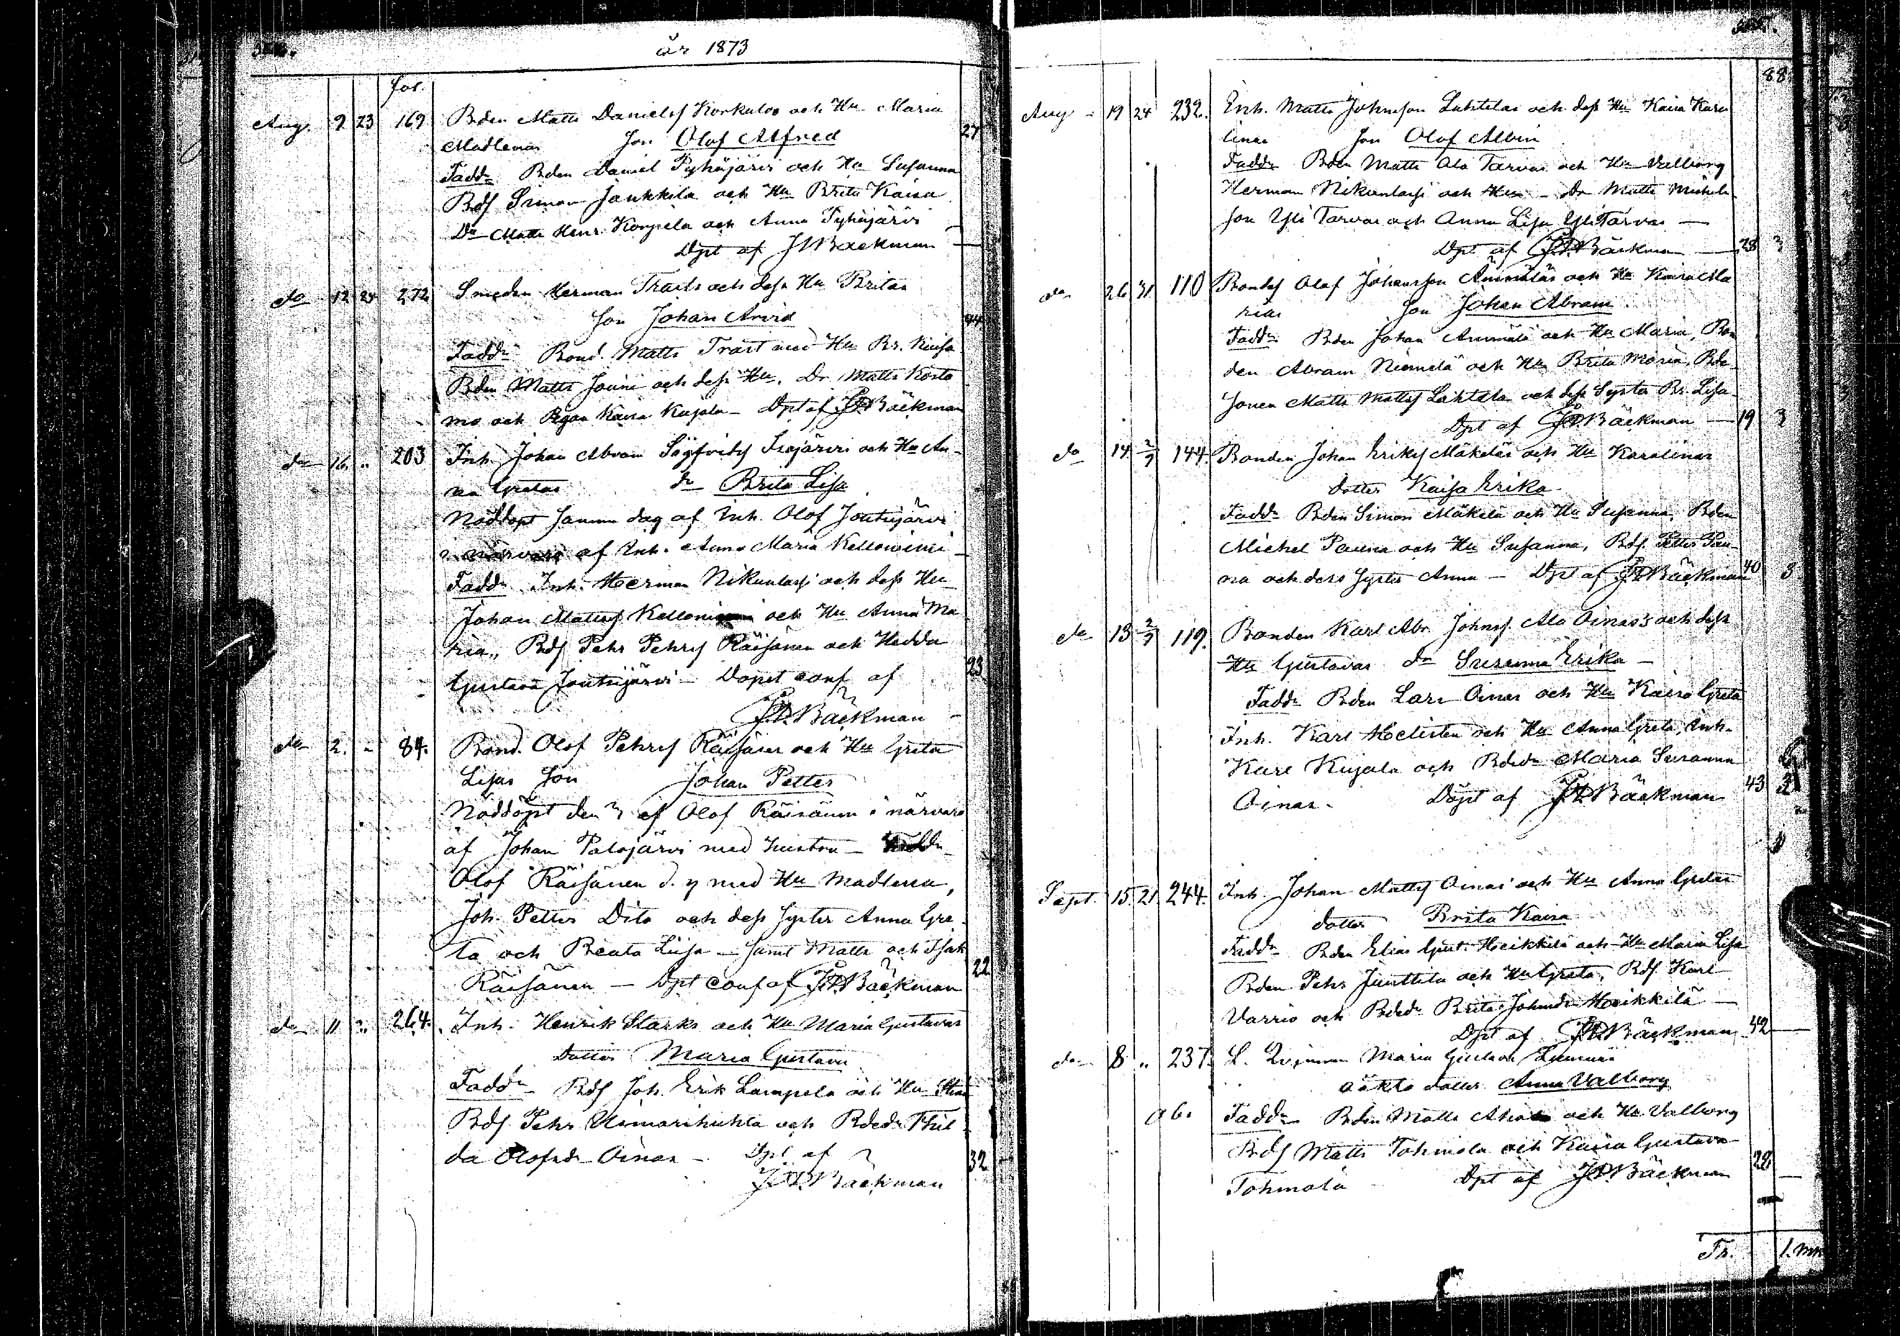 år 1873
fol.
Aug. 9 23 169 Bden Matts Daniels Korkalos och Hu Maria
Madlenas Son Olof Alfred 27
Fadd. Bden Daniel Pyhäjärvi och Hu Susanna
Bds Simon Jankkila och Hu Brita Kaisa
Dr Matts Henr. Konpela och Anna Pyhäjärvi
Dpt af JDBäckman
do 12 24 272 Smeden Herman Trasts och dess Hu Britas
Son Johan Arvid 44
Fadd. Bond. Matts Trast med Hu Br. Kaisa
Bden Matts Jouni och dess Hu, Dr Matts Kosta
mo och Pigan Kaisa Kujala - Dpt af JDBäckman
do 16 .. 203 Inh. Johan Abram Sigfrids Isojärvi och Hu An-
na Gretas dr Brita Lisa
Nöddöpt samma dag af Inh. Olof Joutsijärvi
i närvaro af Inh. Anna Maria Kelloniemi
Fadd. Inh. Herman Nikunlassi och dess Hu
Johan Matts Kelloniemi och Hu Anna Ma
ria, Bds Pehr Pehrs Räisänen och Hedda
Gustava Joutsijärvi - Döpet conf. af 23
JDBäckman
do 2. - 84. Bond. Olof Pehrs Räisänen och Hu Greta
Lisas Son Johan Petter
Nöddöpt den 3 af Olof Räisänen i närvaro
af Johan Palojärvi med hustru - Fadd.
Olof Räisänen d. y med Hu Madlena,
Joh. Petter Dito och dess Syster Anna Gre
ta och Beata Lisa - samt Matts och Isak
Räisänen - Dpt conf af JDBäckman 22
do 11 .. 264. Inh. Henrik Starks och Hu Maria Gustavas
Dotter Maria Gustava
Fadd. Bds Joh. Erik Lampela och Hu Stina
Bds Pehr Uimarihuhta och Bdedr Hil
da Olofsdr Oinas - Dpt af 32
JDBäckman
88.
Aug - 19 24 232. Inh. Matts Johnsson Lahtelas och dess Hu Kaisa Karo
linas Son Olof Albin
Fadd. Bden Matts Ala Tarvas och Hu Valborg
Herman Nikunlassi och Hu - Dr Matts Mickels
son Yli Tarvas och Anna Lisa Yli Tarvas -
Dpt af JDBäckman - 28 3
do 26 31 110 Bondes Olof Johansson Ämmäläs och Hu Kaisa Ma
rias Son Johan Abram
Fadd. Bden Johan Ämmälä och Hu Maria, Bon
den Abram Niemelä och Hu Brita Maria, Bde
Sonen Matts Matts Lahtela och dess Syster Br. Lisa
Dpt af JDBäckman - 19 3
do 14 2/9 144. Bonden Johan Eriks Mäkeläs och Hu Karolinas
dotter Kaisa Erika
Fadd. Bden Simon Mäkelä och Hu Susanna, Bden
Michel Pauna och Hu Susanna, Bds Petter Pau
na och dess Syster Anna - Dpt af JDBäckman 40 3
do 13 2/9 119. Bonden Karl Abr. Johnss. Ala Oinas's och dess
Hu Gustavas dr Susanna Erika -
Fadd. Bden Lars Oinas och Hu Kaisa Greta
Inh. Karl Helisten och Hu Anna Greta, Inh.
Karl Kujala och Bdedr Maria Susanna
Oinas. Döpt af JDBäckman 43 3
Sept. 15 21 244. Inh. Johan Matts Oinas och Hu Anna Gretas
dotter Brita Kaisa
Fadd. Bden Elias Gust. Heikkilä och Hu Maria Lisa
Bden Pehr Junttila och Hu Greta, Bds Karl
Varrio och Bdedr Brita Johnsdr Heikkilä -
Dpt af JDBäckman 42 -
do 8 .. 237. L. Qvinnan Maria Gustava
oäkta dotter Anna Valborg
ab. Fadd. Bden Matts Ahola och Hu Valborg
Bds Matts Tohmola och Kaisa Gustava 28
Tohmola Dpt af JDBäckman -
Tr. 1. mk